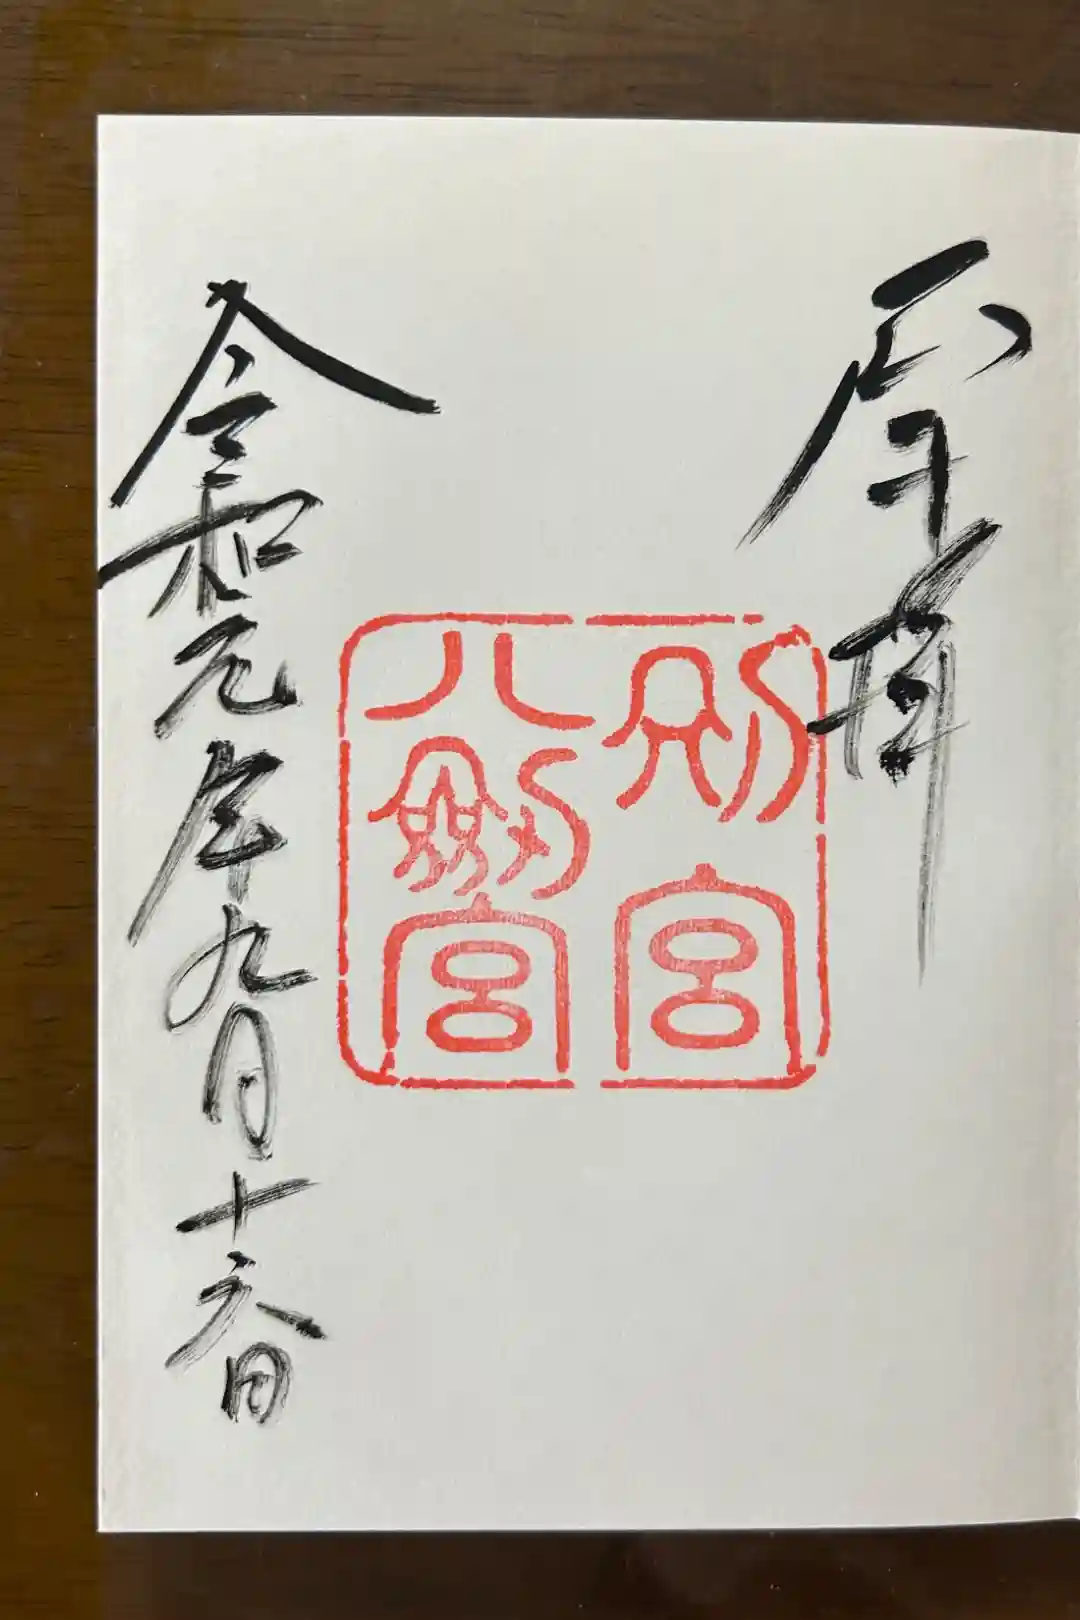 奉拝
別宮
八劔宮
令和元年九月十六日